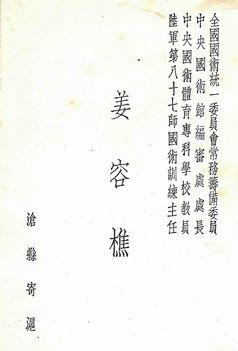 全國國術統一委員會常務籌備委員
中央國術館編審處處長
中央國術體育專科學校教員
陸軍第八十七師國術訓練主任
姜容樵
滄縣寄滬